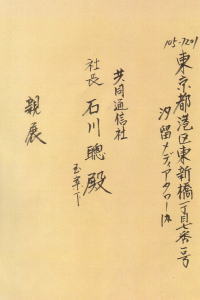 105-7201
東京都港区東新橋一丁目七番一号
汐留メディアタワー内
共同通信社
社長 石川聰殿
玉案下
親展